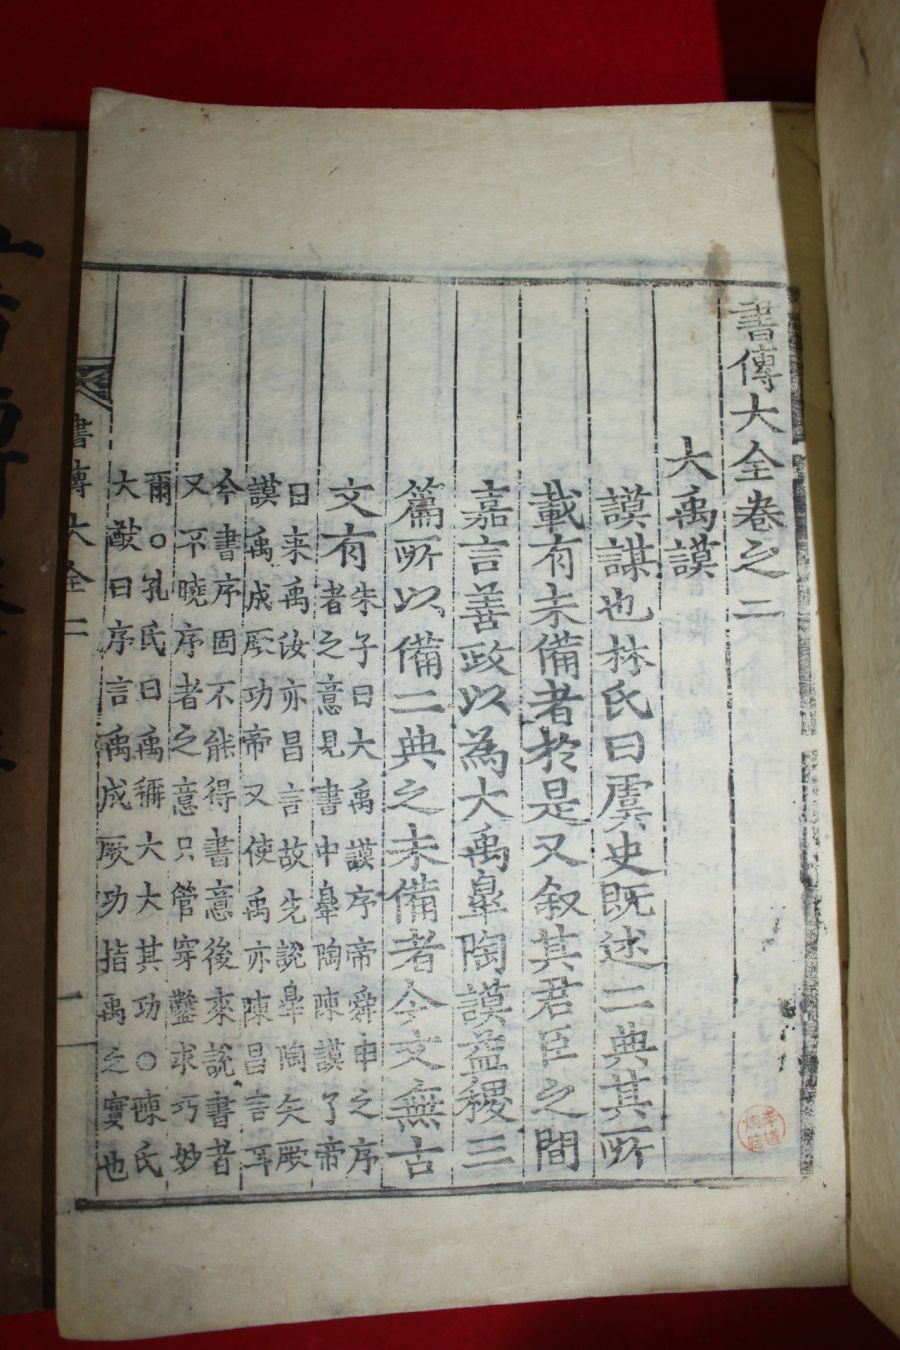 書傳大全卷之二
大禹謨
謨謀也林氏曰虞史既述二典其所
載有未備者於是又叙其君臣之間
嘉言善政以為大禹皐陶謨益稷三
篇所以備二典之未備者今文無古
文有
朱子曰大禹謨序帝舜申之序
者之意見書中皐陶陳謨了帝
曰来禹汝亦昌言故先說皐陶矢厥
謨禹成厥功帝又使禹亦陳昌言耳
今書序固不能得書意後來說書者
又不曉序者之意只管穿鑿求巧妙
爾○孔氏曰禹稱大大其功○陳氏
大猷曰序言禹成厥功指禹之實也
書傳大全二
一